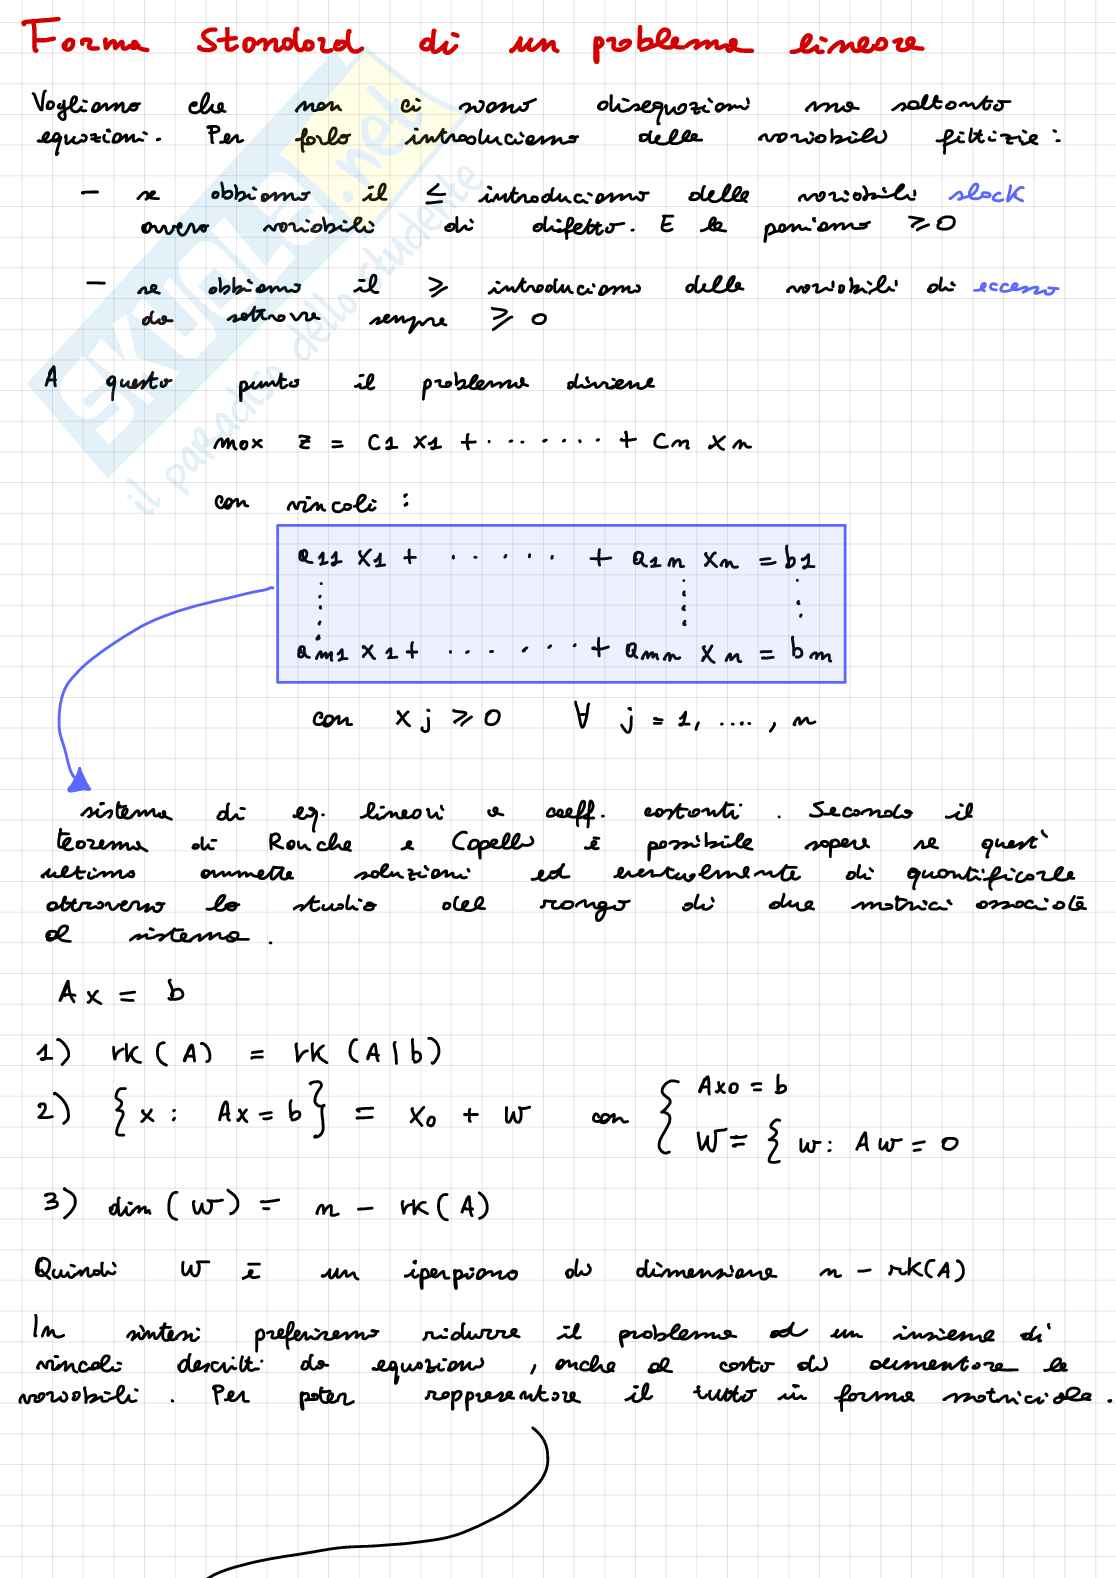 Forma Standard di un problema lineare
Vogliamo che non ci siano disequazioni ma soltanto
equazioni. Per farlo introduciamo delle variabili fittizie:
- se abbiamo il ≤ introduciamo delle variabili slack
ovvero variabili di difetto. E le poniamo ≥0
- se abbiamo il ≥ introduciamo delle variabili di eccesso
da sottrarre sempre ≥ 0
A questo punto il problema diviene
max z = C1 x1 + ········ + Cn xn
con vincoli :
a11 x1 + ······ + a1n xn = b1
am1 x1 + ······ + amn xn = bm
con xj ≥ 0 ∀ j = 1, ...., n
sistema di eq. lineari a coeff. costanti . Secondo il
teorema di Rouche e Capelli è possibile sapere se quest'
ultimo ammette soluzioni ed eventualmente di quantificarle
attraverso lo studio del rango di due matrici associate
al sistema .
Ax = b
1) rk (A) = rk (A|b)
2) {x : Ax = b} = x0 + W con { Ax0 = b
W = { w: Aw = 0
3) dim (W) = n - rk(A)
Quindi W è un iperpiano di dimensione n - rk(A)
In sintesi preferiremo ridurre il problema ad un insieme di
vincoli descritti da equazioni , anche al costo di aumentare le
variabili . Per poter rappresentare il tutto in forma matriciale .
SKUOLA.net
il paradiso dello studente